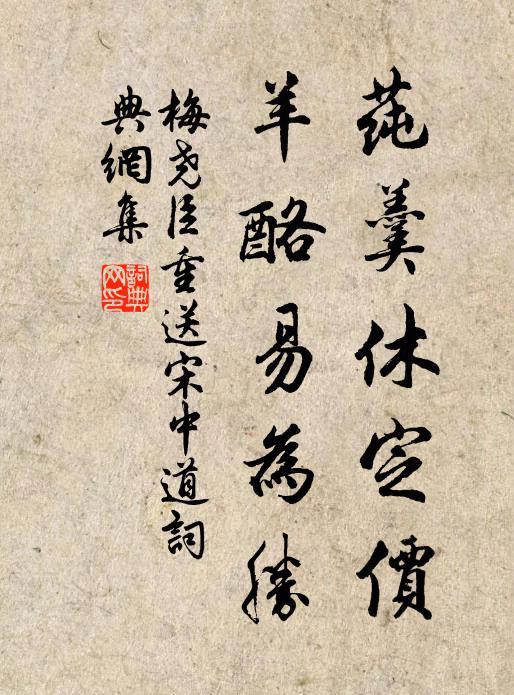 莼羹休定價
羊酪易為勝
梅堯臣重送宋中道詞
典網集
詞典
网印